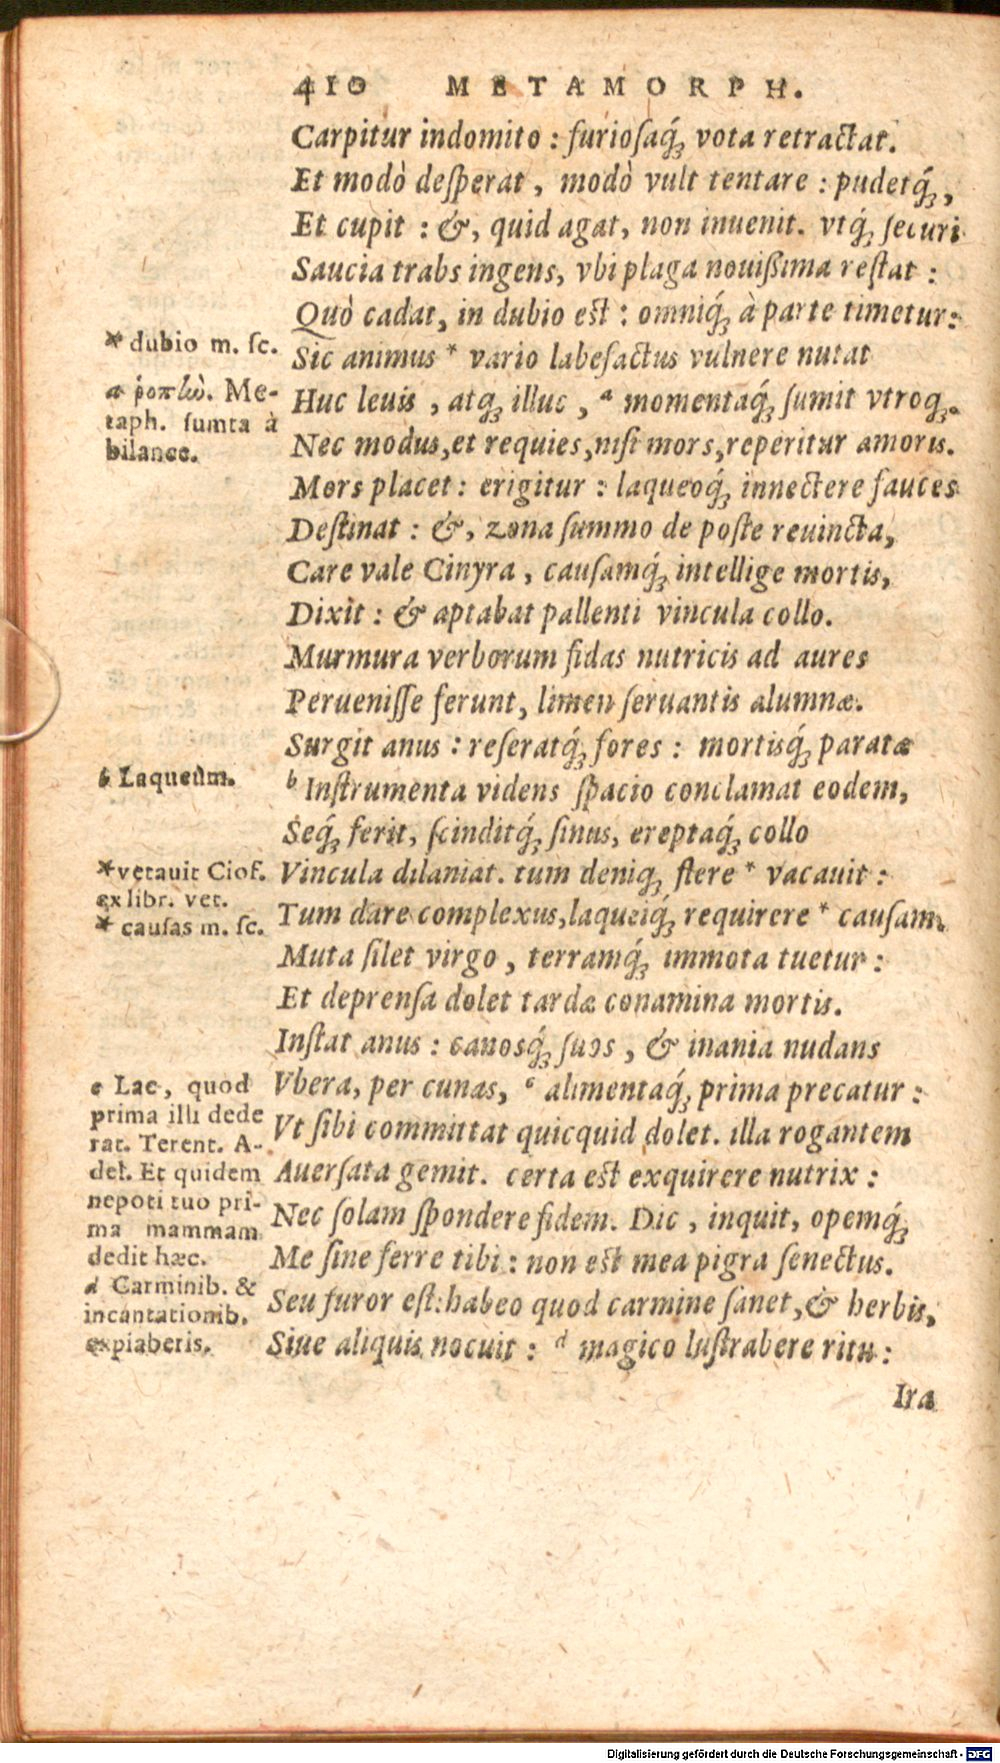 410 METAMORPH.
Carpitur indomito : furiosaq́; vota retractat.
Et modò desperat, modò vult tentare : pudetq́;,
Et cupit : &, quid agat, non inuenit. vtq́; securi
Saucia trabs ingens, vbi plaga nouißima restat :
Quò cadat, in dubio est : omniq́; à parte timetur:
Sic animus * vario labefactus vulnere nutat
Huc leuis, atq; illuc, ᵃ momentaq́; sumit vtroq;.
Nec modus, et requies, nisi mors, reperitur amoris.
Mors placet : erigitur : laqueoq́; innectere fauces
Destinat : &, zona summo de poste reuincta,
Care vale Cinyra, causamq́; intellige mortis,
Dixit : & aptabat pallenti vincula collo.
Murmura verborum fidas nutricis ad aures
Peruenisse ferunt, limen seruantis alumnæ.
Surgit anus : reseratq́; fores : mortisq́; paratæ
ᵇ Instrumenta videns spacio conclamat eodem,
Seq́; ferit, scinditq́; sinus, ereptaq́; collo
Vincula dilaniat. tum deniq; flere * vacauit :
Tum dare complexus, laqueiq́; requirere * causam.
Muta silet virgo, terramq́; immota tuetur :
Et deprensa dolet tardæ conamina mortis.
Instat anus : canosq́; suos, & inania nudans
Vbera, per cunas, ᶜ alimentaq́; prima precatur :
Vt sibi committat quicquid dolet. illa rogantem
Auersata gemit. certa est exquirere nutrix :
Nec solam spondere fidem. Dic, inquit, opemq́;
Me sine ferre tibi : non est mea pigra senectus.
Seu furor est: habeo quod carmine sanet, & herbis,
Siue aliquis nocuit : ᵈ magico lustrabere ritu :
Ira
* dubio m. sc.
a ῥοπλὼ. Me-
taph. sumta à
bilance.
b Laqueum.
* vetauit Ciof.
ex libr. vet.
* causas m. sc.
c Lac, quod
prima illi dede
rat. Terent. A-
del. Et quidem
nepoti tuo pri-
ma mammam
dedit hæc.
d Carminib. &
incantationib.
expiaberis.
Digitalisierung gefördert durch die Deutsche Forschungsgemeinschaft - DFG